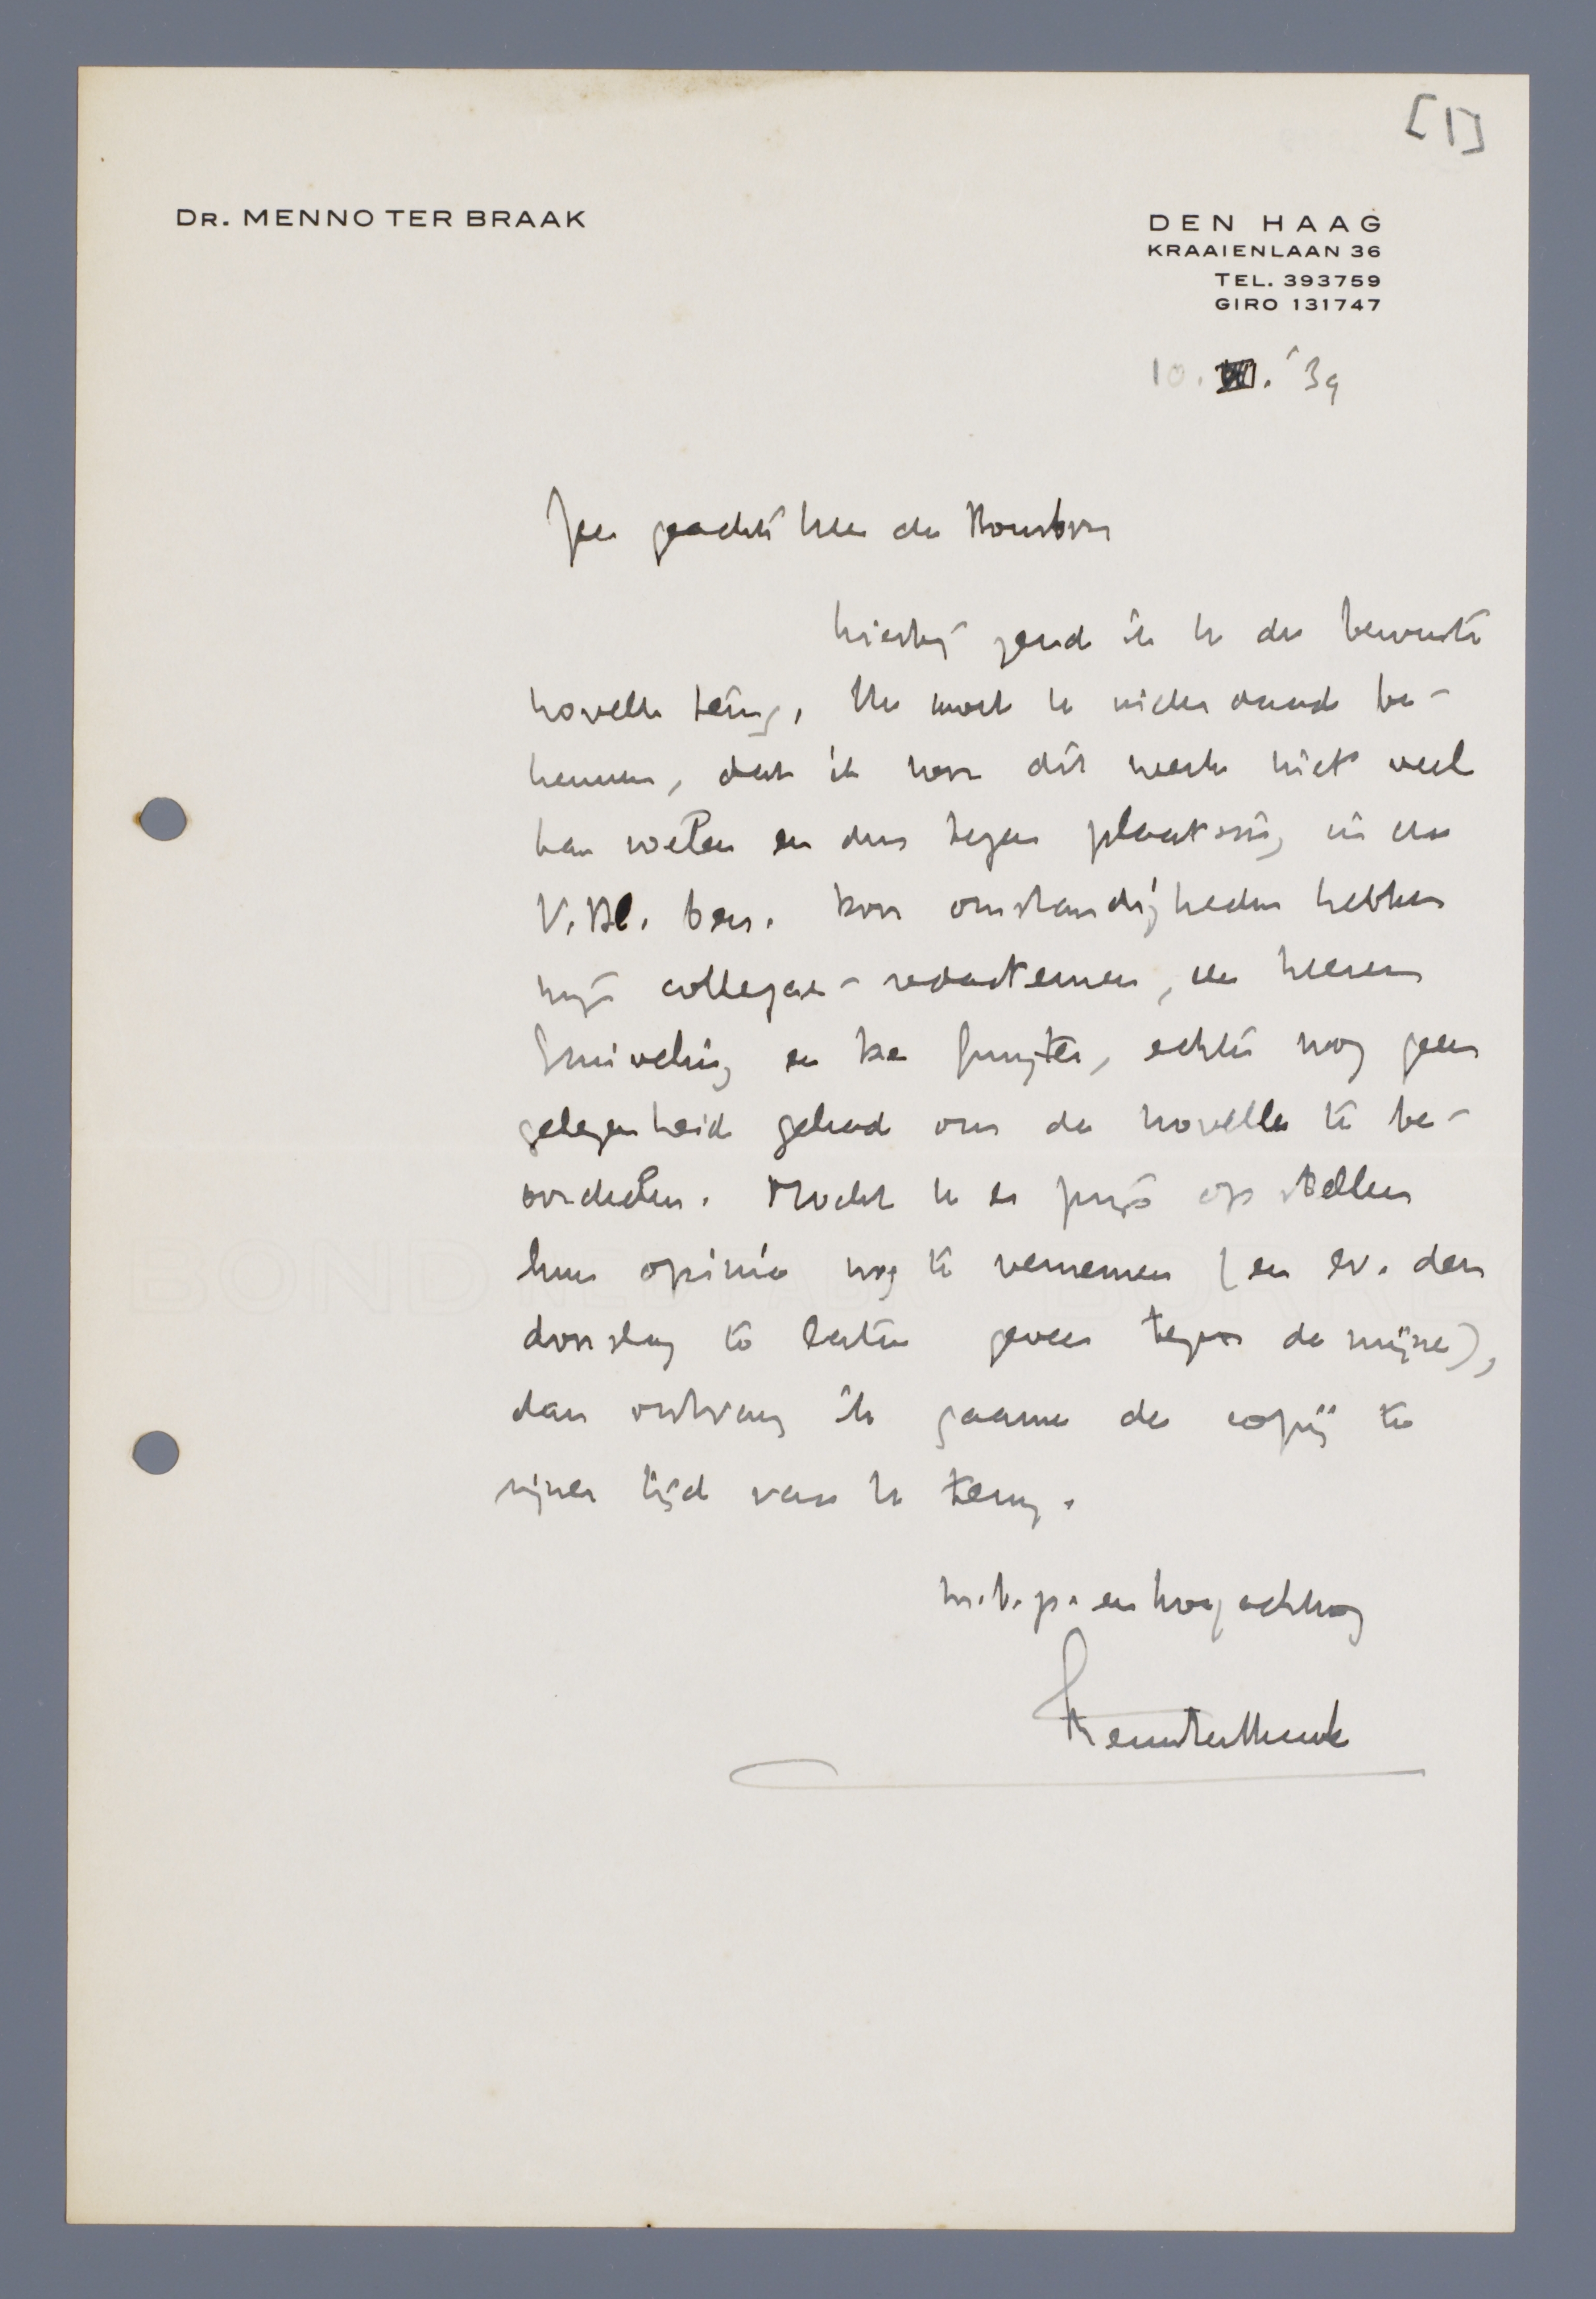 [1]
DR. MENNO TER BRAAK
DEN HAAG
KRAAIENLAAN 36
TEL. 393759
GIRO 131747
10. '39
Zeer geachte heer de
hierbij zend ik U de bewuste
novelle terug. Ik moet U inderdaad be-
kennen, dat ik voor dit werk niet veel
kan voelen en dus tegen plaatsing in de
V. Bl. ben. Door omstandigheden hebben
mijn collega-redacteuren, de heeren
Smivelling en ten echter nog geen
gelegenheid gehad om de novelle te be-
oordeelen. Mocht U er prijs op stellen
hun opinie nog te vernemen (en ev. den
doorslag te laten geven tegen de mijne),
dan ontvang ik gaarne de copij te
zijner tijd van U terug.
m.b.gr. en hoogachting
Menno ter Braak
BOND